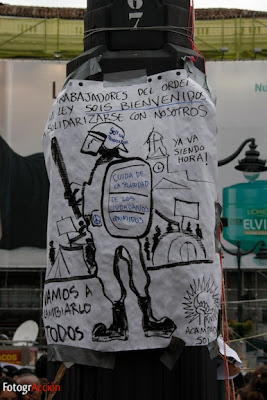 67
TRABAJADORES DEL ORDEN
Y LEY SOIS BIENVENIDOS
SOLIDARIZARSE CON NOSOTROS
YA VA
SIENDO
HORA!
CUIDA DE
DE LOS
CIUDADANOS
VAMOS A
CAMBIARLO
TODOS
ACAMPADA
SOL
Nu
ELVI
FotogrAcción